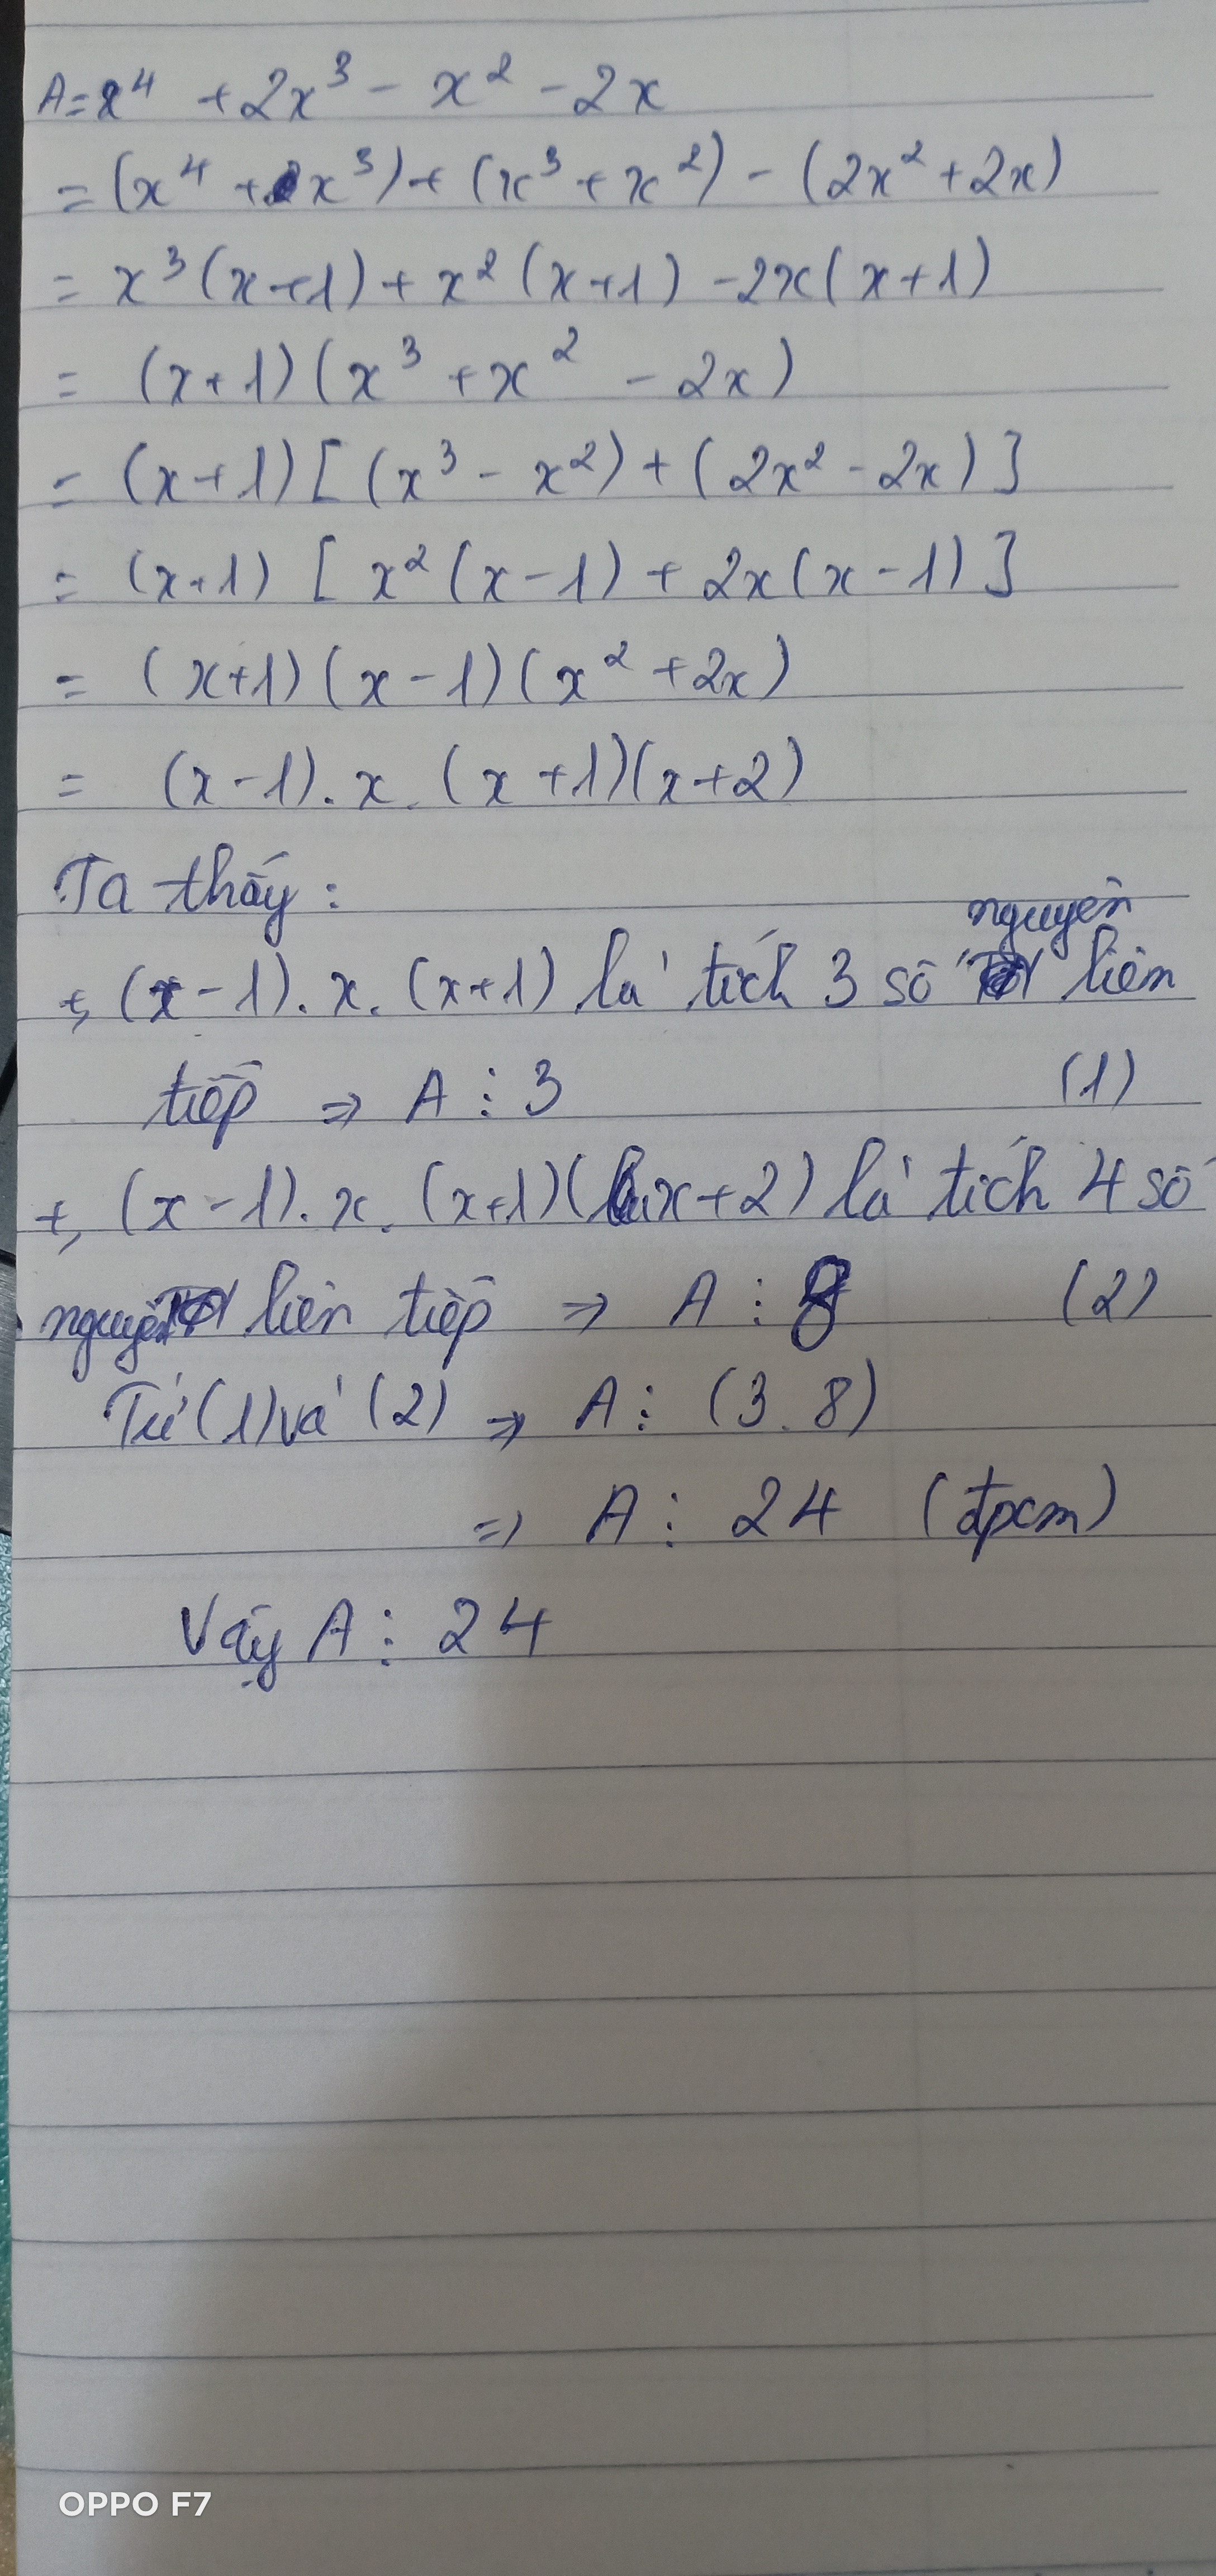 A = x⁴ + 2x³ - x² - 2x
= (x⁴ + x³) + (x³ + x²) - (2x² + 2x)
= x³(x+1) + x²(x+1) - 2x(x+1)
= (x+1)(x³ + x² - 2x)
= (x+1)[(x³ - x²) + (2x² - 2x)]
= (x+1)[x²(x-1) + 2x(x-1)]
= (x+1)(x-1)(x² + 2x)
= (x-1).x.(x+1)(x+2)
Ta thấy:
+, (x-1).x.(x+1) là tích 3 số nguyên liên
tiếp => A ⋮ 3 (1)
+, (x-1).x.(x+1)(x+2) là tích 4 số
nguyên liên tiếp => A ⋮ 8 (2)
Từ (1) và (2) => A ⋮ (3.8)
=> A ⋮ 24 (đpcm)
Vậy A ⋮ 24
OPPO F7